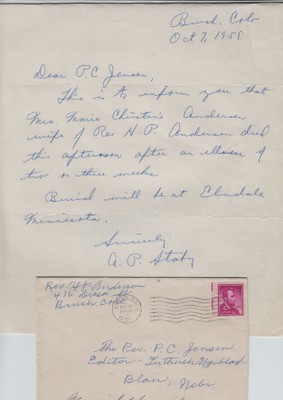 Brush, Colo
Oct 7, 1958
Dear P.C. Jensen,
This is to inform you that
Mrs. Marie Christine Andersen
wife of Rev H. P. Andersen died
this afternoon after an illness of
two or three weeks
Burial will be at Elmdale
Minnesota.
Sincerely
A. P.
Rev. H.P. Andersen
Brush Colo.
The Rev. P. C. Jensen
Editor - Luthersk Ugeblad
Blair, Nebr.